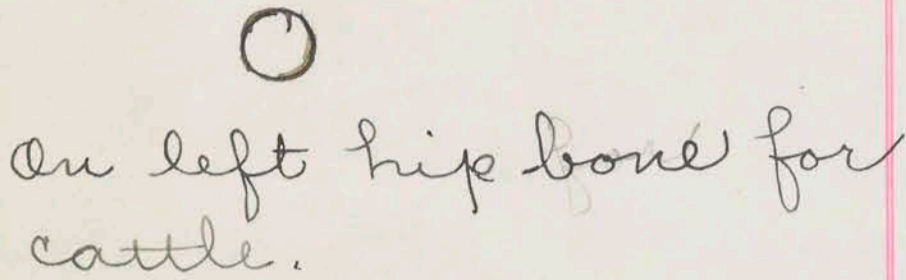 On left hip bone for
cattle.